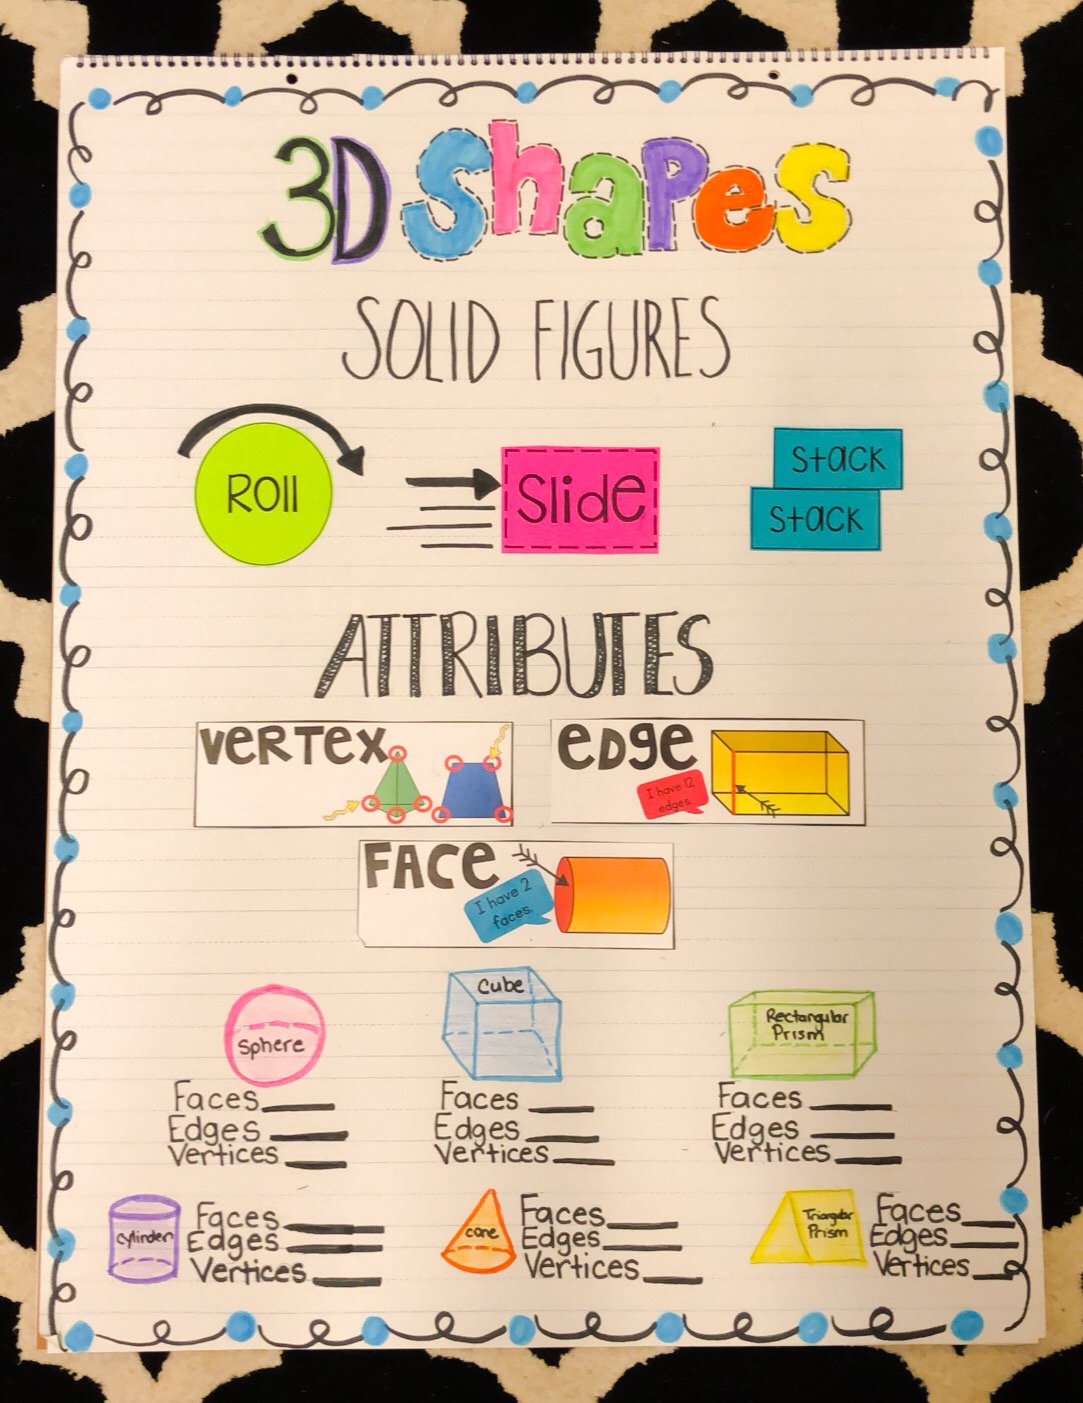 3D Shapes
SOLID FIGURES
Roll
Slide
stack
stack
ATTRIBUTES
VeRTex
eDge
I have 12
edges.
FACe
I have 2
faces.
Sphere
Faces
Edges
Vertices
Cube
Faces
Edges
Vertices
Rectangular
Prism
Faces
Edges
Vertices
Cylinder
Faces
Edges
Vertices
cone
Faces
Edges
Vertices
Triangular
Prism
Faces
Edges
Vertices